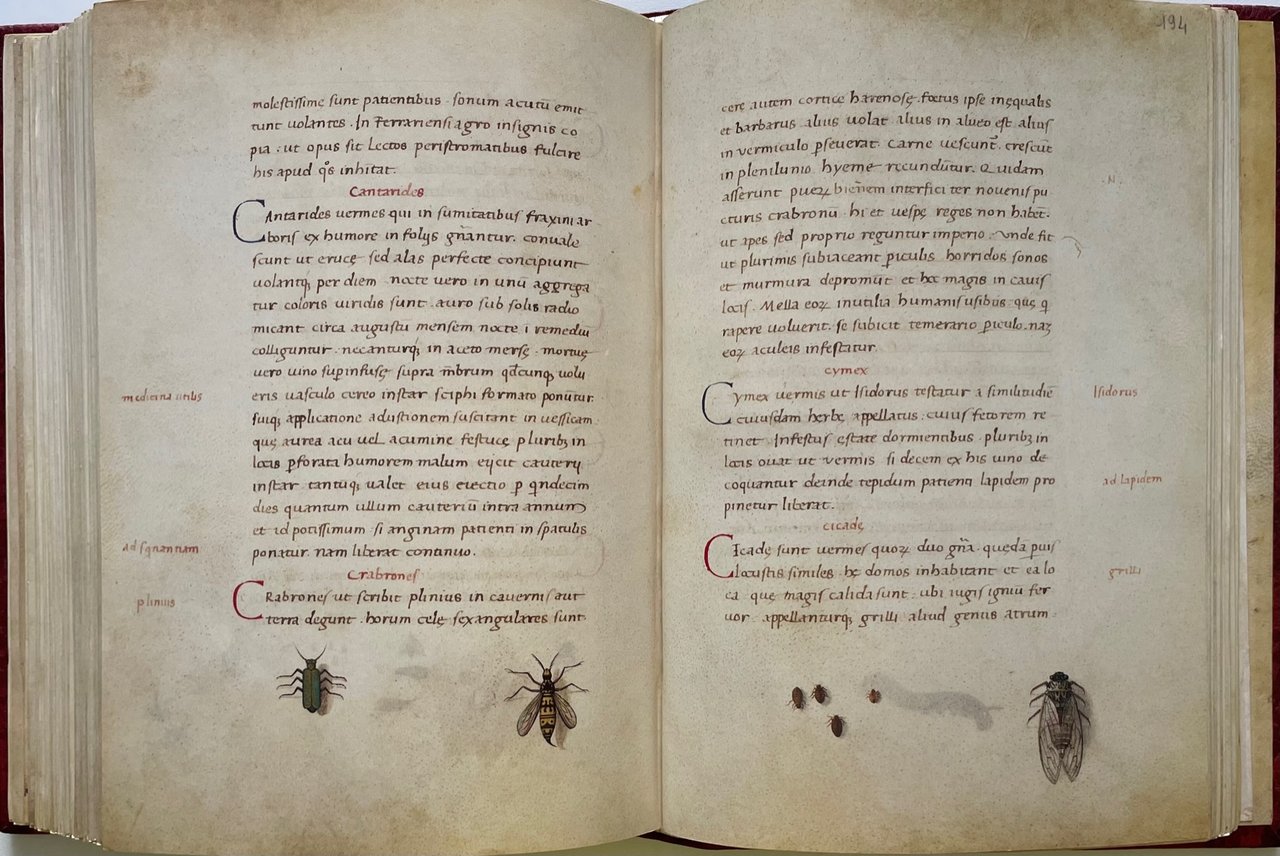 molestissime sunt patientibus · sonum acutū emit
tunt uolantes · In Ferrariensi agro insignis co
pia : ut opus sit Lectos peristromatibus fulcire
his apud q̊s inhītat.
Cantarides
CAntarides uermes qui in sumitatibus fraxini ar
boris ex humore in folijs gn̄antur. conuale
scunt ut erucę sed alas perfecte concipiunt
uolantq; per diem nocte vero in unū aggrega
tur coloris uiridis sunt . auro sub solis radio
micant circa augustū mensem nocte ī remediū
colliguntur . necanturq; in aceto mersę . mortuę
uero uino sup̄infusę supra m̄brum qd̄cunq; uolu
eris uasculo cereo instar sciphi formato ponūtur.
medicina utilis
suiq; applicatione adustionem suscitant in uessicam
quę aurea acu ueL acumine festucę pluribz in
locis ꝑforata humorem malum eijcit cauterij
instar tantūq; ualet eius eiectio ꝑ qn̄decim
dies quantum ullum cauteriū intra annum
et id potissimum si anginam patienti in spatulis
ad sqnantiam
ponatur. nam liberat continuo.
Crabrones
CRabrones ut scribit plinius in cauernis aut
plinius
terra degunt . horum celę sexangulares sunt
194
cere autem cortice harenosę . foetus ipse inęqualis
et barbarus alius uolat alius in alueo est alius
in uermiculo ꝑseuerat. Carne uescunt̄. crescūt
in plenilunio hyeme recundūtur. Quidam
.N.
asserunt pueꝝ bienem interfici ter nouenis pu
cturis crabronū . hi et uespę reges non habēt.
ut apes sed proprio reguntur imperio . Vnde fit
ut plurimis subiaceant ꝑiculis horridos sonos
et murmura depromūt et hoc magis in cauis
locis . Mella eoꝝ inutilia humanis usibus quę q
rapere uoluerit . se subicit temerario ꝑiculo . naꝫ
eoꝝ aculeis infestatur.
cymex
Cymex uermis ut Isidorus testatur a similitudīe
Isidorus
cuiusdam herbę appellatus . cuius fetorem re
tinet Infestus ęstate dormientibus . pluribz in
locis ouat ut uermis si decem ex his uino de
coquantur deinde tepidum patienti lapidem pro
ad lapidem
pinetur liberat.
cicadę
CIcadę sunt uermes quoꝝ duo gn̄a . quedā ꝑuis
locustis similes . hę domos inhabitant et ea lo
grilli
ca quę magis calida sunt : ubi iugis igniū fer
uor . appellanturq; grilli aliud genus atrum